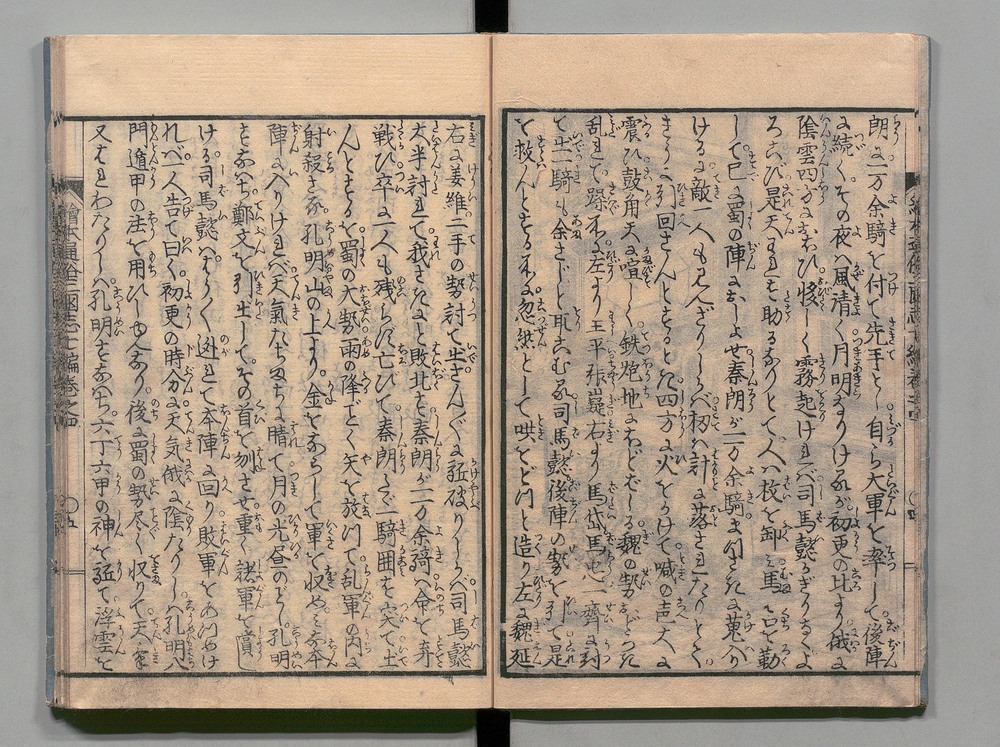 朗に一万余騎を付て先手とし自ら大軍を率して後陣
に続くその夜ハ風清く月明なりけるが初更の比より俄に
陰雲四方におほひ悽しく霧起けれバ司馬懿かぎりなくよ
ろこび是天われを助るなりとて人ハ枚を銜ミ馬ハ口を勒
して已に蜀の陣におしよせ秦朗が一万余騎まづ閧きたに蒐入
けるに敵一人も見へざりしかバ扨ハ計に落されたりとて
きうに引回さんとするとき四方に火をかけて喊の声大に
震ひ鼓角天に喧しく鉄炮地にとどろけバ魏の勢
乱れて躁ぐ所に左より王平張嶷右より馬岱馬忠一齊に討
て出一騎も余さじと取こむる司馬懿後陣の勢を引て是
を救んとする所に忽然として哄をどつと造り左に魏延
右に姜維二手の勢討て出さんざんに距破りしかバ司馬懿
大半討れて我さきにと敗北し秦朗が一万余騎ハ命を弃
戦ひ卒に一人も残らず亡びて秦朗たゞ一騎囲を突て出
んとするを蜀の大勢雨の降ごとく矢を放つて乱軍の内に
射殺さる孔明山の上より金をならして軍を収めミな本
陣に入りけれバ天氣たちまちに晴て月の光昼のごとし孔明
すなはち鄭文を引出してその首を刎させ重く諸軍を賞し
ける司馬懿ハやうやく逃れて本陣に回り敗軍をあつめけ
れバ人告て曰く初更の時分に天気俄に陰たりしハ孔明八
門遁甲の法を用ひしゆへなり後に蜀の勢尽く収りて天
又はれわたりしハ孔明すなはち六丁六甲の神を駈て浮雲を